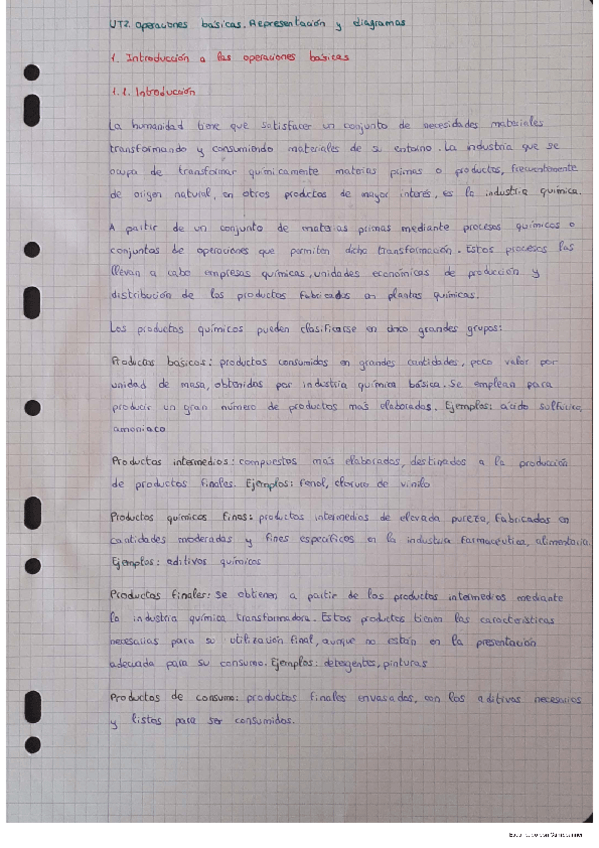 UT2. Operaciones basicas. Representación y diagramas
1. Introducción a las operaciones basicas
1.1. Introducción
La humanidad tiene que satisfacer un conjunto de necesidades materiales
transformando y consumiendo materiales de su entorno. La industria que se
ocupa de transformar químicamente materias primas o productos, frecuentemente
de origen natural, en otros productos de mayor interés, es la industria química.
A partir de un conjunto de materias primas mediante procesos químicos o
conjuntos de operaciones que permiten dicha transformación. Estos procesos las
llevan a cabo empresas químicas, unidades económicas de producción y
distribución de los productos fabricados en plantas químicas.
Los productos químicos pueden clasificarse en cinco grandes grupos:
Productos basicos: productos consumidos en grandes cantidades, poco valor por
unidad de masa, obtenidos por industria química básica. Se emplean para
producir un gran número de productos mas elaborados. Ejemplos: ácido sulfúrico,
amoniaco
Productos intermedios: compuestos mas elaborados, destinados a la producción
de productos finales. Ejemplos: fenol, cloruro de vinilo
Productos químicos finos: productos intermedios de elevada pureza, fabricados en
cantidades moderadas y fines específicos en la industria farmaceútica, alimentaria.
Ejemplos: aditivos químicos
Productos finales: se obtienen a partir de los productos intermedios mediante
la industria química transformadora. Estos productos tienen las características
necesarias para su utilización final, aunque no están en la presentación
adecuada para su consumo. Ejemplos: detegentes, pinturas
Productos de consumo: productos finales envasados, con los aditivos necesarios
y listos para ser consumidos.